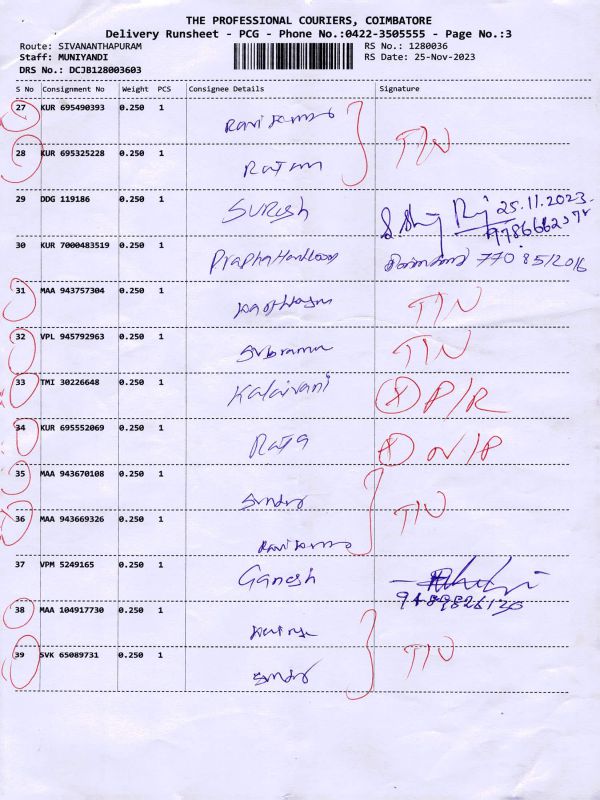 THE PROFESSIONAL COURIERS, COIMBATORE
Delivery Runsheet - PCG - Phone No.:0422-3505555 - Page No.:3
Route: SIVANANTHAPURAM RS No.: 1280036
Staff: MUNIYANDI RS Date: 25-Nov-2023
DRS No.: DCJB128003603
S No Consignment No Weight PCS Consignee Details Signature
27 KUR 695490393 0.250 1
28 KUR 695325228 0.250 1 T/N
29 DDG 119186 0.250 1 SURESH 25.11.2023
30 KUR 7000483519 0.250 1
31 MAA 943757304 0.250 1 T/N
32 VPL 945792963 0.250 1 T/N
33 TMI 30226648 0.250 1 Kalaivani P/R
34 KUR 695552069 0.250 1
35 MAA 943670108 0.250 1
36 MAA 943669326 0.250 1 T/N
37 VPM 5249165 0.250 1 Ganesh
9489826120
38 MAA 104917730 0.250 1
39 SVK 65089731 0.250 1 T/N